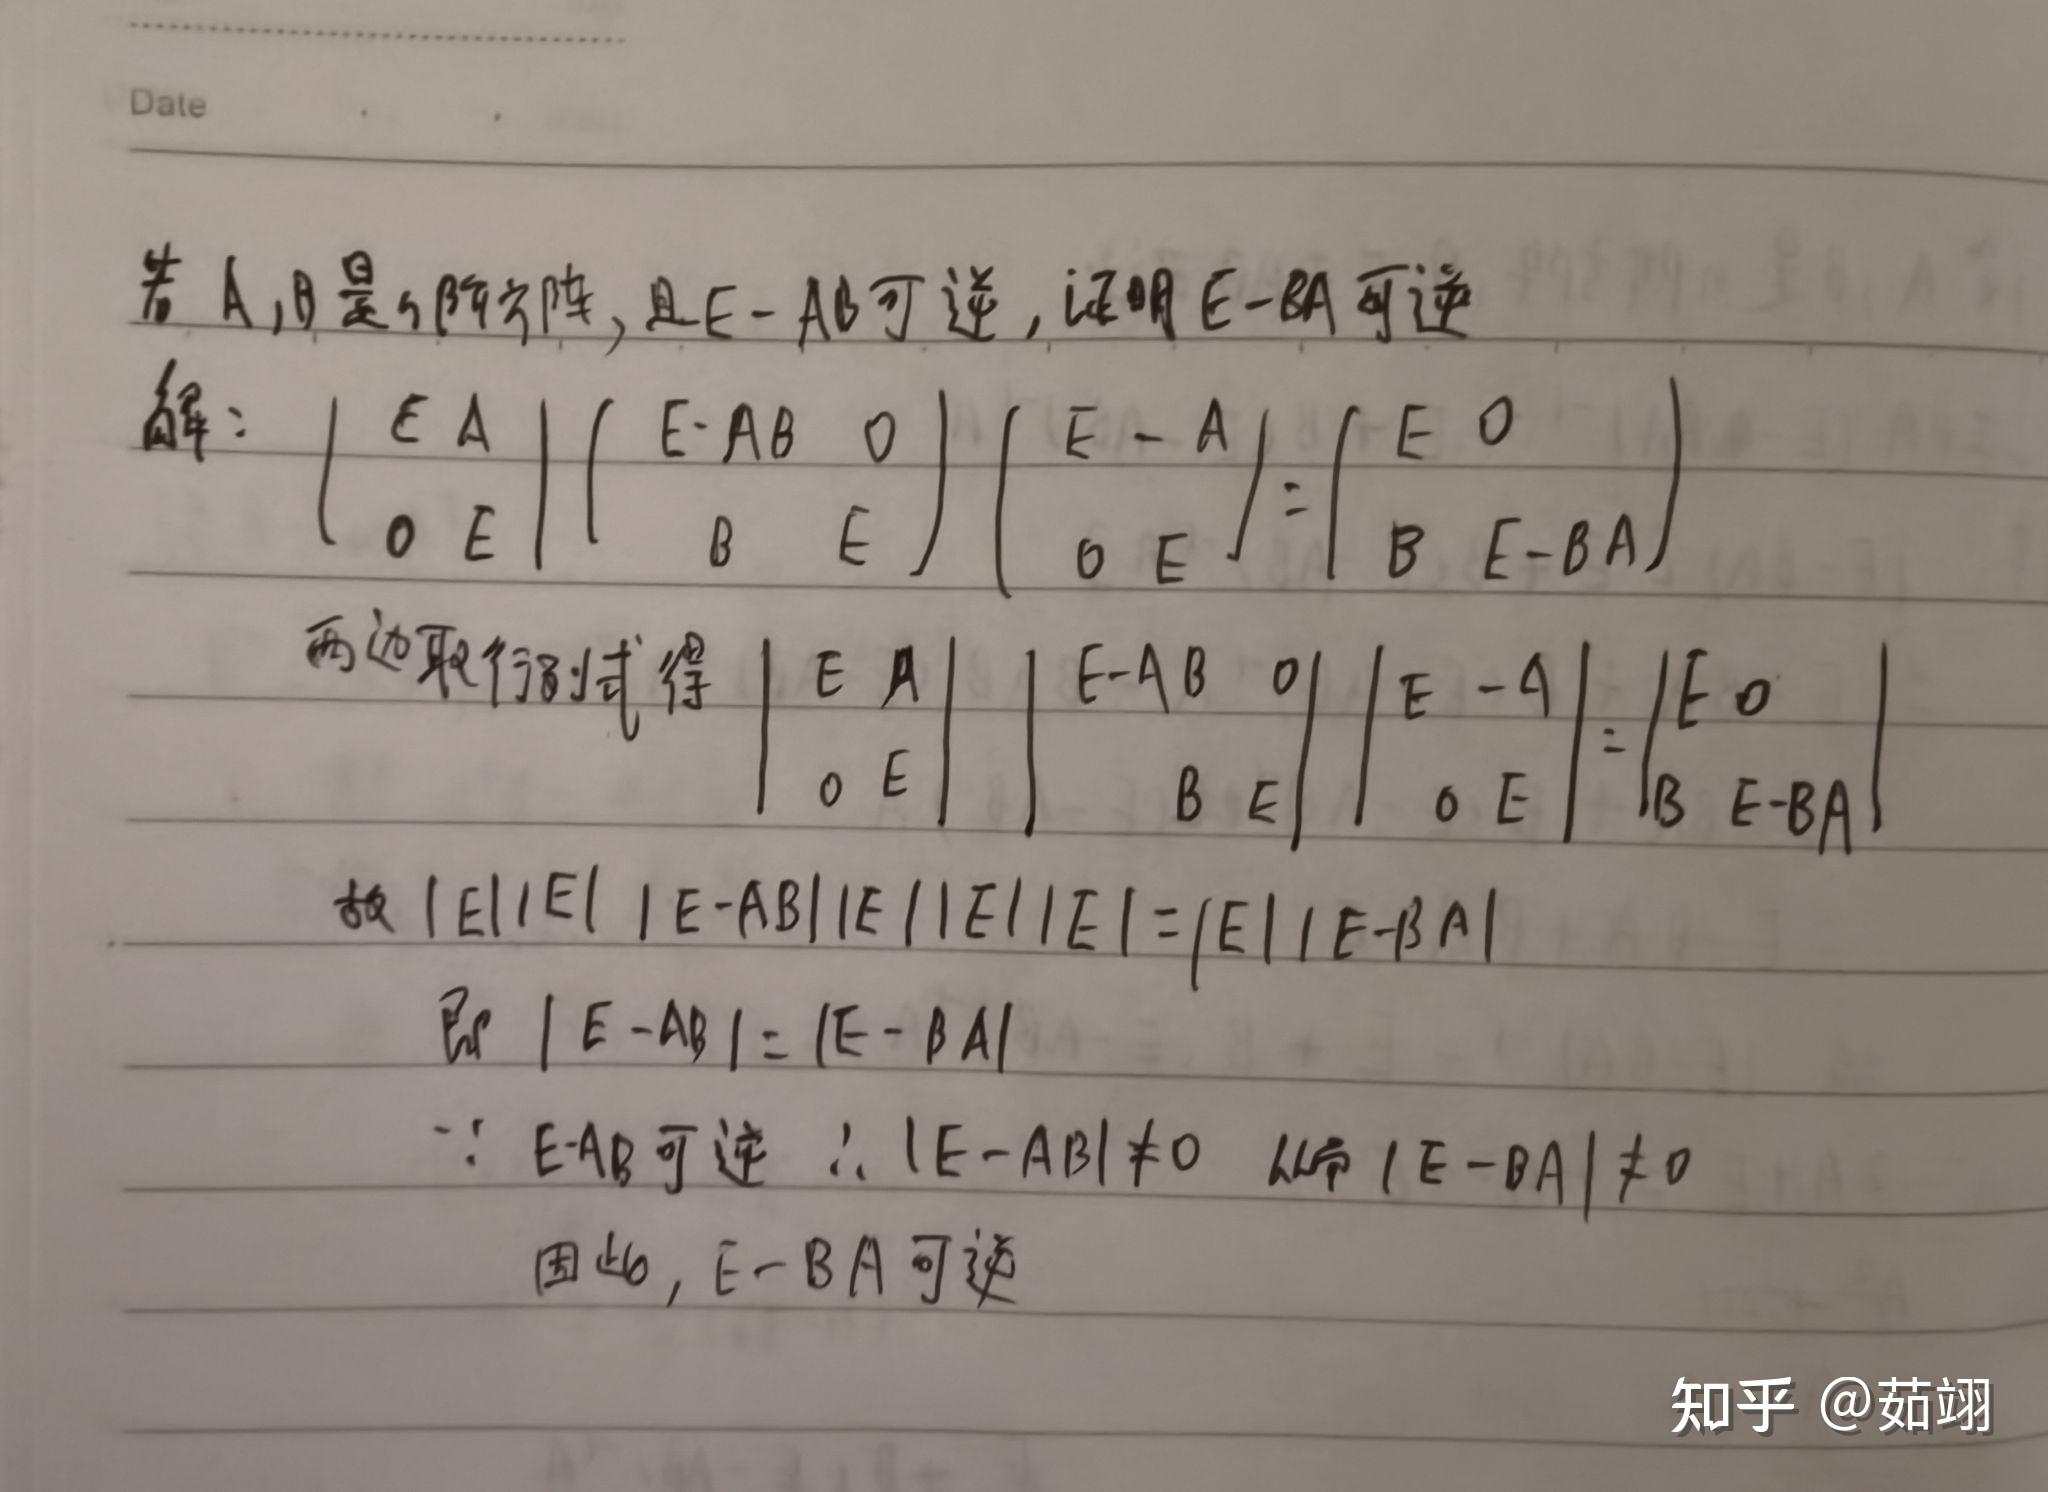 Date
若 A,B是n阶方阵,且E-AB可逆,证明E-BA可逆
解: | E A | ( E-AB 0 ) ( E -A ) = ( E 0 )
0 E B E 0 E B E-BA
两边取行列式得 | E A | | E-AB 0 | | E -A | = | E 0 |
0 E B E 0 E B E-BA
故 |E||E| |E-AB||E||E||E|=|E||E-BA|
即 |E-AB|=|E-BA|
∵ E-AB可逆 ∴ |E-AB|≠0 从而 |E-BA|≠0
因此, E-BA可逆
知乎 @茹翊